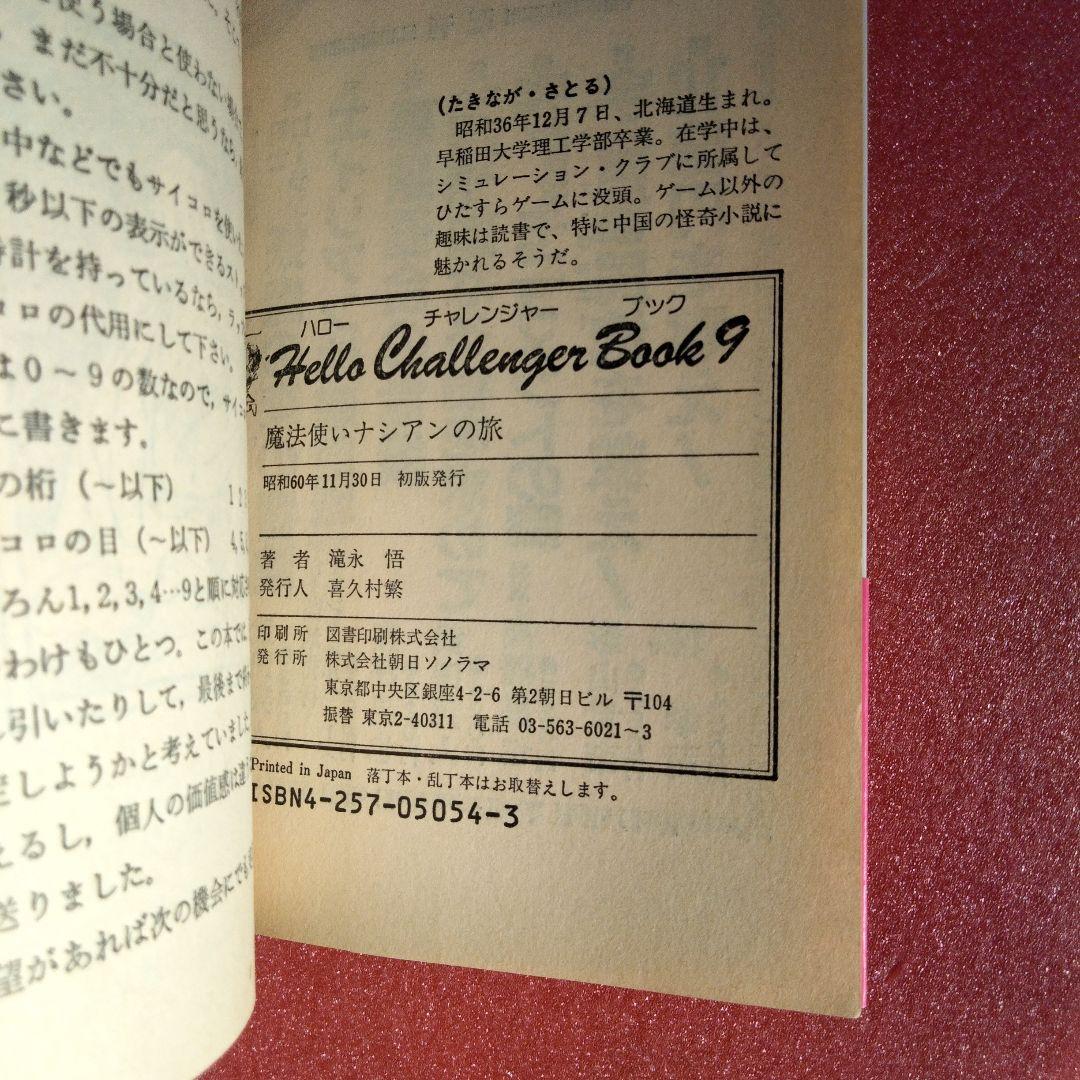 使う場合と使わない
まだ不十分だと思うなら、
さい。
中などでもサイコロを使い
秒以下の表示ができるスト
計を持っているなら，ラッ
コロの代用にして下さい。
は0～9の数なので，サイコ
に書きます。
の桁（～以下）
コロの目（～以下） 4,5,
ろん1,2,3,4…9と順に対応
わけもひとつ。この本では
引いたりして，最後まで
しようかと考えていました
えるし，個人の価値感は違
送りました。
望があれば次の機会にでも
（たきなが・さとる）
昭和36年12月7日、北海道生まれ。
早稲田大学理工学部卒業。在学中は、
シミュレーション・クラブに所属して
ひたすらゲームに没頭。ゲーム以外の
趣味は読書で、特に中国の怪奇小説に
魅かれるそうだ。
ハロー チャレンジャー ブック
Hello Challenger Book 9
魔法使いナシアンの旅
昭和60年11月30日 初版発行
著 者 滝永 悟
発行人 喜久村繁
印刷所 図書印刷株式会社
発行所 株式会社朝日ソノラマ
東京都中央区銀座4-2-6 第2朝日ビル 〒104
振替 東京2-40311 電話 03-563-6021～3
Printed in Japan 落丁本・乱丁本はお取替えします。
ISBN4-257-05054-3